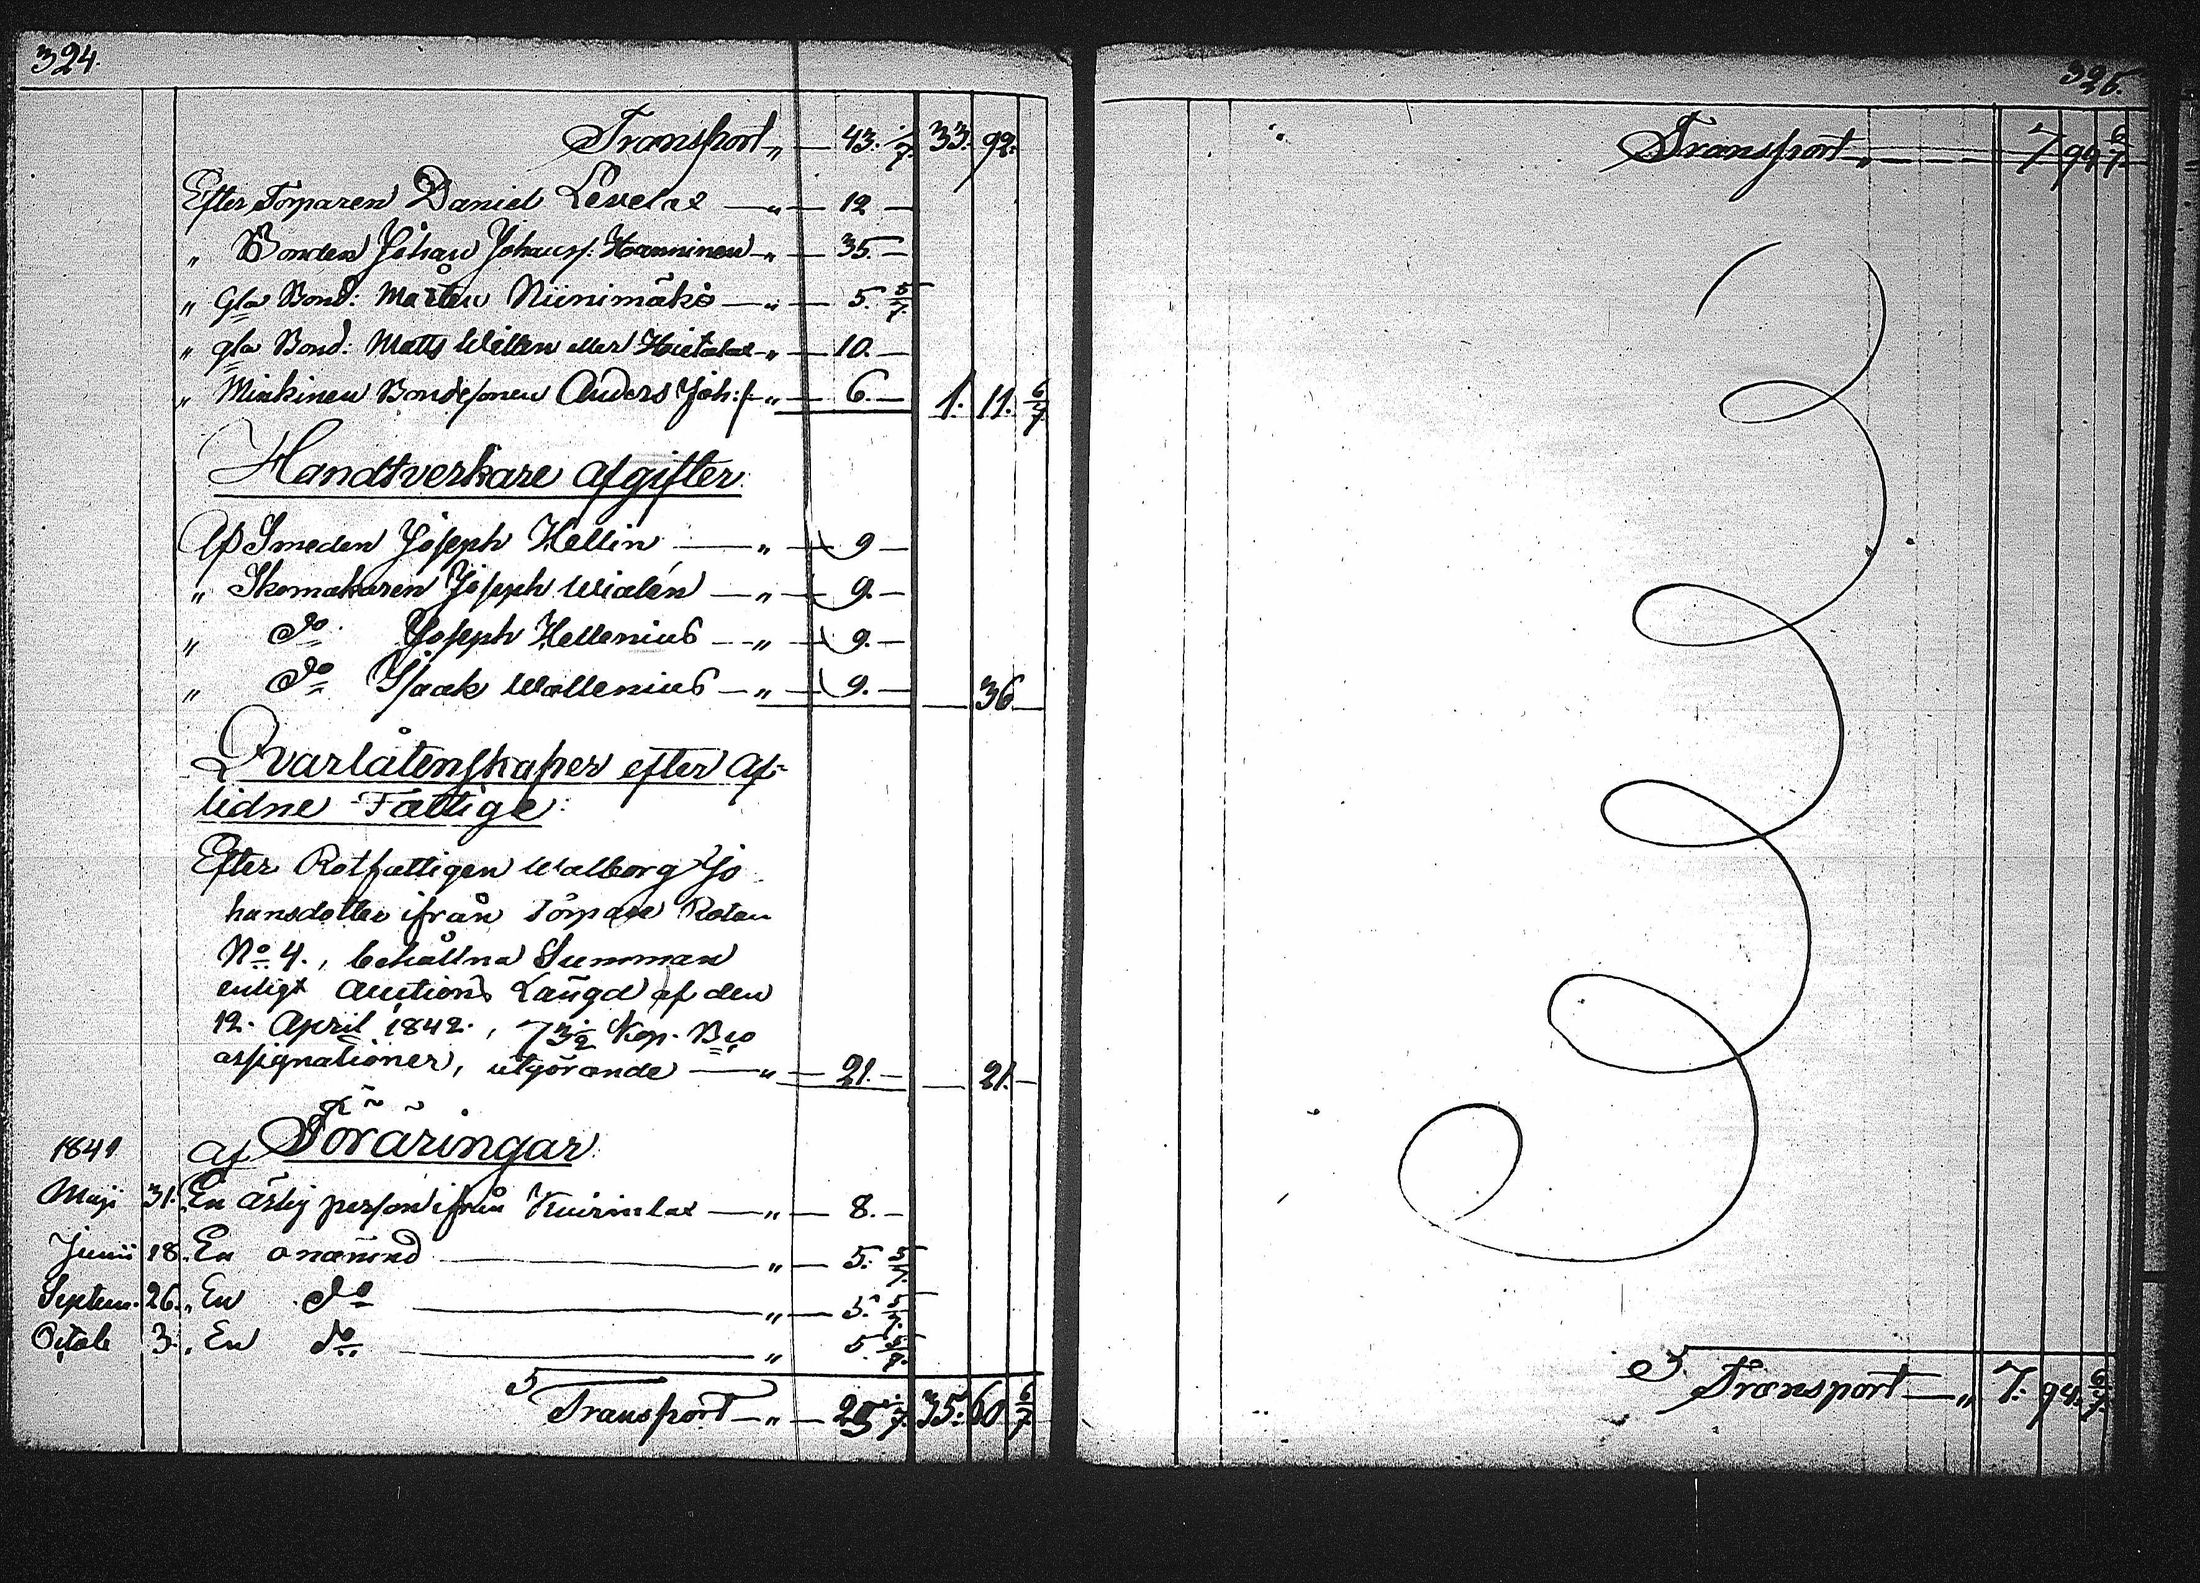 324.
Transport „ — 43. 1/7. 33. 92.
Efter Torparen Daniel Levelax — „ — 12 —
„ Bonden Johan Johanss: Hanninen — „ — 35. —
„ gla Bond: Mårten Niinimäki — „ — 5. 5/7.
„ gla Bond: Matts Willen eller Hietalax — „ — 10. —
„ Minkinen Bondesonen Anders Joh:s — „ — 6. — 1. 11. 6/7
Handtverkare afgifter.
Af Smeden Joseph Hellin — „ — 9 —
„ Skomakaren Joseph Widlén — „ — 9. —
„ do Joseph Hellenius — „ — 9. —
„ do Isaak Wallenius — „ — 9. — 36
Qvarlåtenskaper efter af-
lidne Fattige.
Efter Rotfattigen Walborg Jo
hansdotter ifrån Torpare Rotan
No 4., behållna Summan
enligt Auctions Längd af den
12. April 1842., 73 1/2 Kop. Bco
assignationer, utgörande — „ — 21. — 21. —
1841 Af Föräringar.
Maji 31. En ärlig person ifrån Kuirinlax — „ — 8. —
Junii 18. En onämnd — „ — 5. 5/7.
Septem. 26. „ En do — „ — 5. 5/7.
Octob 3. „ En do — „ 5. 5/7.
Transport — „ — 25 1/7. 35. 60 6/7
325.
Transport „ — 7 94 6/7
Transport — „ 7. 94. 6/7